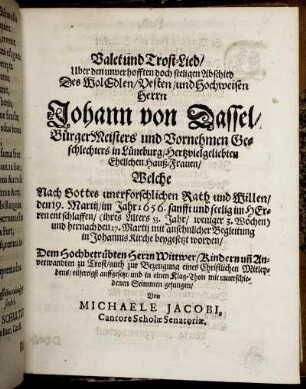 Valet und Trost-Lied/
Uber den unverhofften doch seeligen Abschied
Des WolEdlen/ Vesten/ und Hochweisen
Herrn
Johann von Dassel/
BürgerMeisters und Vornehmen Ge-
schlechters in Lüneburg/ Hertzvielgeliebten
Ehelichen Hauß-Frauen/
Welche
Nach Gottes unerforschlichen Rath und Willen/
den 19. Martij/ im Jahr 1656. sanfft und seelig im HEr-
ren entschlaffen/ (ihres Alters 53. Jahr/ weniger 3. Wochen)
und hernach den 27. Martij mit ansehnlicher Begleitung
in Johannis Kirche beygesetzt worden/
Dem Hochbetrübten Herrn Wittwer/ Kindern uñ An-
verwandten zu Trost/ auch zur Bezeugung eines Christlichen Mitley-
dens/ eilfertigst auffgesetzt und in einem Klag-Thon mit unterschie-
denen Stimmen gesungen/
Von
MICHAELE JACOBI,
Cantore Scholæ Senatoriæ.